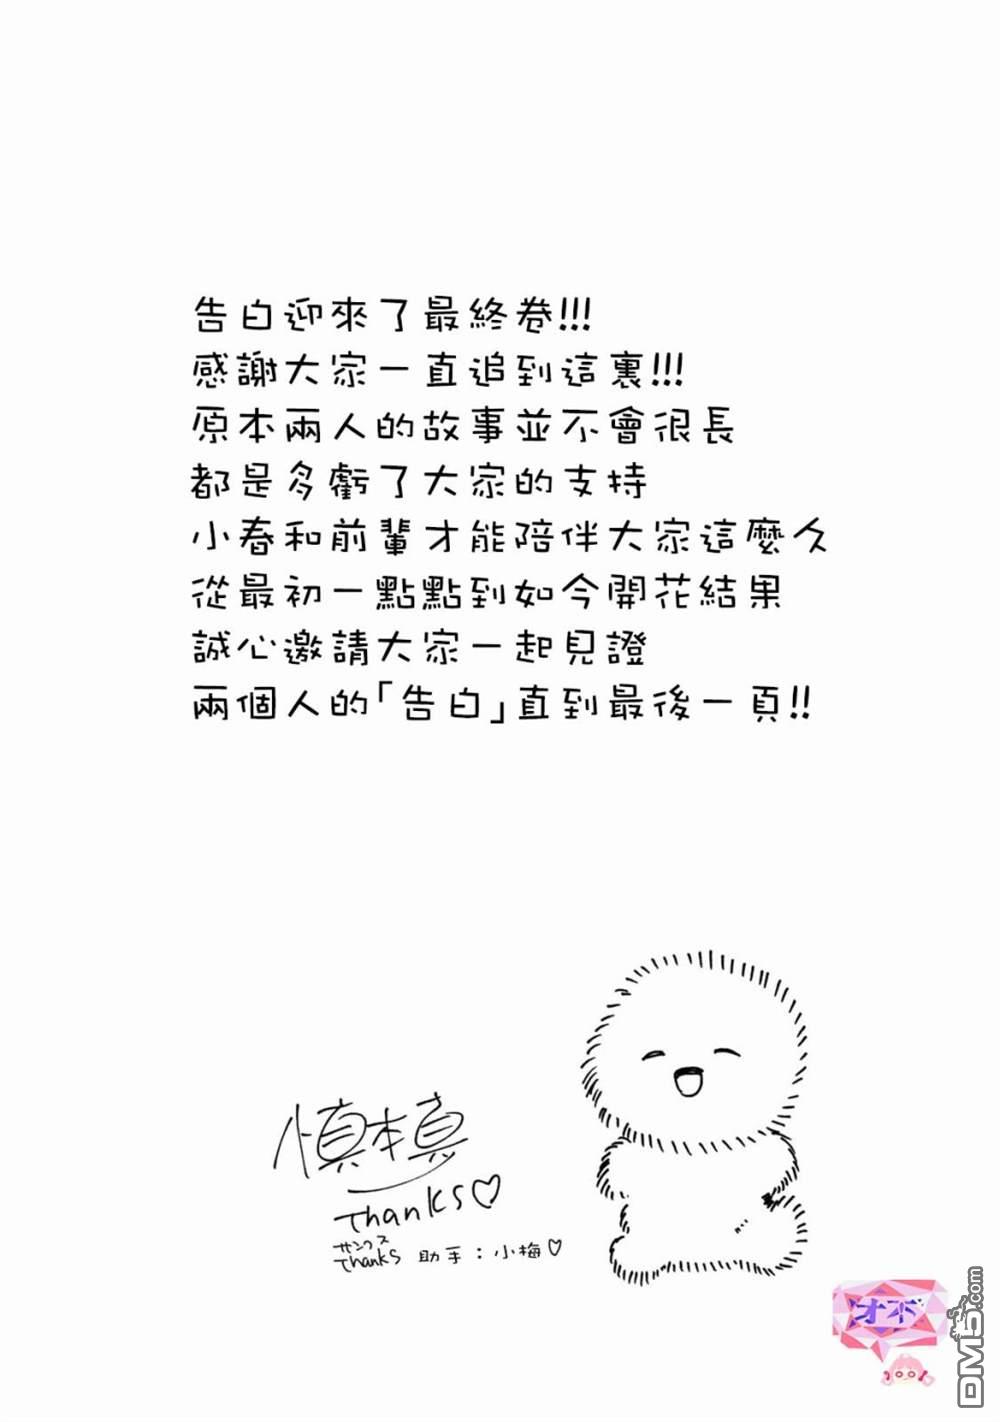 告白迎來了最終卷!!!
感謝大家一直追到這裏!!!
原本兩人的故事並不會很長
都是多虧了大家的支持
小春和前輩才能陪伴大家這麼久
從最初一點點到如今開花結果
誠心邀請大家一起見證
兩個人的「告白」直到最後一頁!!
慎本真
Thanks♡
サンクス
Thanks 助手：小梅♡
才不
DM5.com